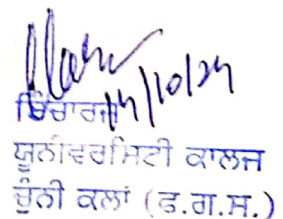 14/10/24
ਇੰਚਾਰਜ
ਯੂਨੀਵਰਸਿਟੀ ਕਾਲਜ
ਚੁੰਨੀ ਕਲਾਂ (ਫ.ਗ.ਸ.)